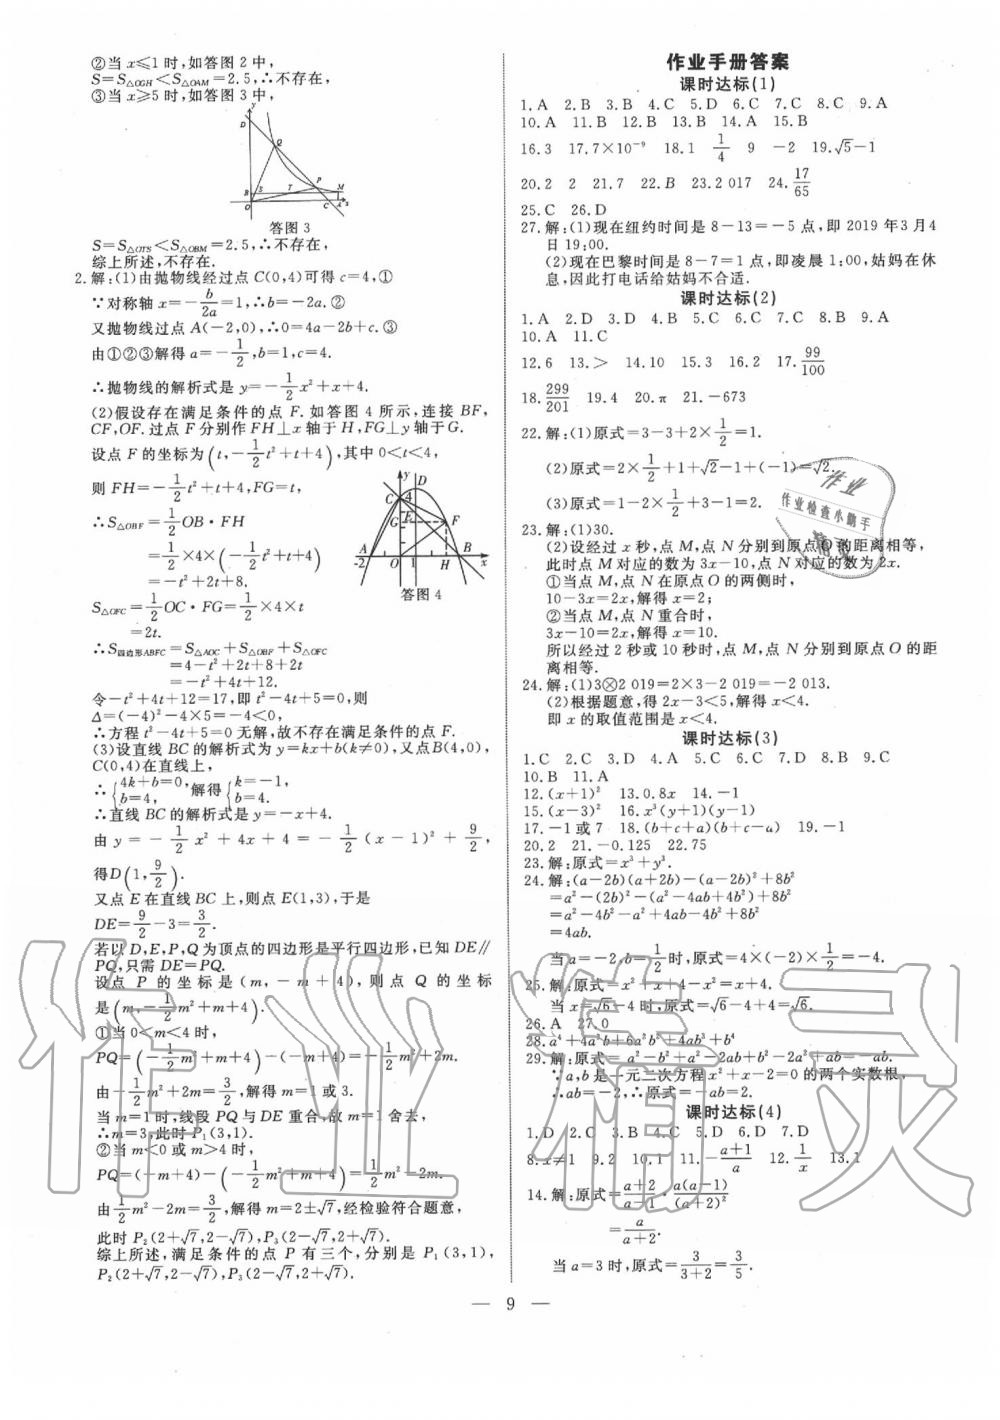 ②当 x≤1 时,如答图 2 中,
S=S△OGH<S△OAM=2.5,∴不存在,
③当 x≥5 时,如答图 3 中,
y
D
Q
P
B S T M
O C A x
答图 3
S=S△OTS<S△OBM=2.5,∴不存在,
综上所述,不存在.
2.解:(1)由抛物线经过点 C(0,4)可得 c=4,①
∵对称轴 x=-b/2a=1,∴b=-2a.②
又抛物线过点 A(-2,0),∴0=4a-2b+c.③
由①②③解得 a=-1/2,b=1,c=4.
∴抛物线的解析式是 y=-1/2x²+x+4.
(2)假设存在满足条件的点 F.如答图 4 所示,连接 BF,
CF,OF.过点 F 分别作 FH⊥x 轴于 H,FG⊥y 轴于 G.
设点 F 的坐标为(t,-1/2t²+t+4),其中 0<t<4,
则 FH=-1/2t²+t+4,FG=t,
∴S△OBF=1/2OB·FH
=1/2×4×(-1/2t²+t+4)
=-t²+2t+8.
S△OFC=1/2OC·FG=1/2×4×t
=2t.
y
D
C 4
E
G F
A B
-2 O 1 H x
答图 4
∴S四边形ABFC=S△AOC+S△OBF+S△OFC
=4-t²+2t+8+2t
=-t²+4t+12.
令-t²+4t+12=17,即 t²-4t+5=0,则
Δ=(-4)²-4×5=-4<0,
∴方程 t²-4t+5=0 无解,故不存在满足条件的点 F.
(3)设直线 BC 的解析式为 y=kx+b(k≠0),又点B(4,0),
C(0,4)在直线上,
∴{4k+b=0, b=4, 解得{k=-1, b=4.
∴直线 BC 的解析式是 y=-x+4.
由 y=-1/2x²+4x+4=-1/2(x-1)²+9/2,
得D(1,9/2).
又点 E 在直线 BC 上,则点 E(1,3),于是
DE=9/2-3=3/2.
若以 D,E,P,Q 为顶点的四边形是平行四边形,已知 DE∥
PQ,只需 DE=PQ.
设点 P 的坐标是(m,-m+4),则点 Q 的坐标
是(m,-1/2m²+m+4).
①当 0<m<4 时,
PQ=(-1/2m²+m+4)-(-m+4)=-1/2m²+2m.
由-1/2m²+2m=3/2,解得 m=1 或 3.
当 m=1 时,线段 PQ 与 DE 重合,故 m=1 舍去,
∴m=3,此时 P₁(3,1).
②当 m<0 或 m>4 时,
PQ=(-m+4)-(-1/2m²+m+4)=1/2m²-2m.
由1/2m²-2m=3/2,解得 m=2±√7,经检验符合题意,
此时 P₂(2+√7,2-√7),P₃(2-√7,2+√7).
综上所述,满足条件的点 P 有三个,分别是 P₁(3,1),
P₂(2+√7,2-√7),P₃(2-√7,2+√7).
作业手册答案
课时达标(1)
1.A 2.B 3.B 4.C 5.D 6.C 7.C 8.C 9.A
10.A 11.B 12.B 13.B 14.A 15.B
16.3 17.7×10⁻⁹ 18.1 1/4 9 -2 19.√5-1
20.2 2 21.7 22.B 23.2 017 24.17/65
25.C 26.D
27.解:(1)现在纽约时间是 8-13=-5 点,即 2019 年 3 月 4
日 19:00.
(2)现在巴黎时间是 8-7=1 点,即凌晨 1:00,姑妈在休
息,因此打电话给姑妈不合适.
课时达标(2)
1.A 2.D 3.D 4.B 5.C 6.C 7.C 8.B 9.A
10.A 11.C
12.6 13.> 14.10 15.3 16.2 17.99/100
18.299/201 19.4 20.π 21.-673
22.解:(1)原式=3-3+2×1/2=1.
(2)原式=2×1/2+1+√2-1+(-1)=√2.
(3)原式=1-2×1/2+3-1=2.
23.解:(1)30.
(2)设经过 x 秒,点 M,点 N 分别到原点 O 的距离相等,
此时点 M 对应的数为 3x-10,点 N 对应的数为 2x.
①当点 M,点 N 在原点 O 的两侧时,
10-3x=2x,解得 x=2;
②当点 M,点 N 重合时,
3x-10=2x,解得 x=10.
所以经过 2 秒或 10 秒时,点 M,点 N 分别到原点 O 的距
离相等.
24.解:(1)3⊗2 019=2×3-2 019=-2 013.
(2)根据题意,得 2x-3<5,解得 x<4.
即 x 的取值范围是 x<4.
课时达标(3)
1.C 2.C 3.D 4.A 5.C 6.C 7.D 8.B 9.C
10.B 11.A
12.(x+1)² 13.0.8x 14.-1
15.(x-3)² 16.x³(y+1)(y-1)
17.-1 或 7 18.(b+c+a)(b+c-a) 19.-1
20.2 21.-0.125 22.75
23.解:原式=x³+y³.
24.解:(a-2b)(a+2b)-(a-2b)²+8b²
=a²-(2b)²-(a²-4ab+4b²)+8b²
=a²-4b²-a²+4ab-4b²+8b²
=4ab.
当 a=-2,b=1/2时,原式=4×(-2)×1/2=-4.
25.解:原式=x²+x+4-x²=x+4.
当 x=√6-4 时,原式=√6-4+4=√6.
26.A 27.0
28.a⁴+4a³b+6a²b²+4ab³+b⁴
29.解:原式=a²-b²+a²-2ab+b²-2a²+ab=-ab.
∵a,b 是一元二次方程 x²+x-2=0 的两个实数根,
∴ab=-2,∴原式=-ab=2.
课时达标(4)
1.D 2.C 3.B 4.A 5.D 6.D 7.D
8.x≠1 9.2 10.1 11.-(a+1)/a 12.1/x 13.1
14.解:原式=(a+2)/(a-1)·a(a-1)/(a+2)²
=a/(a+2).
当 a=3 时,原式=3/(3+2)=3/5.
— 9 —
作业精灵
作业
作业检查小助手